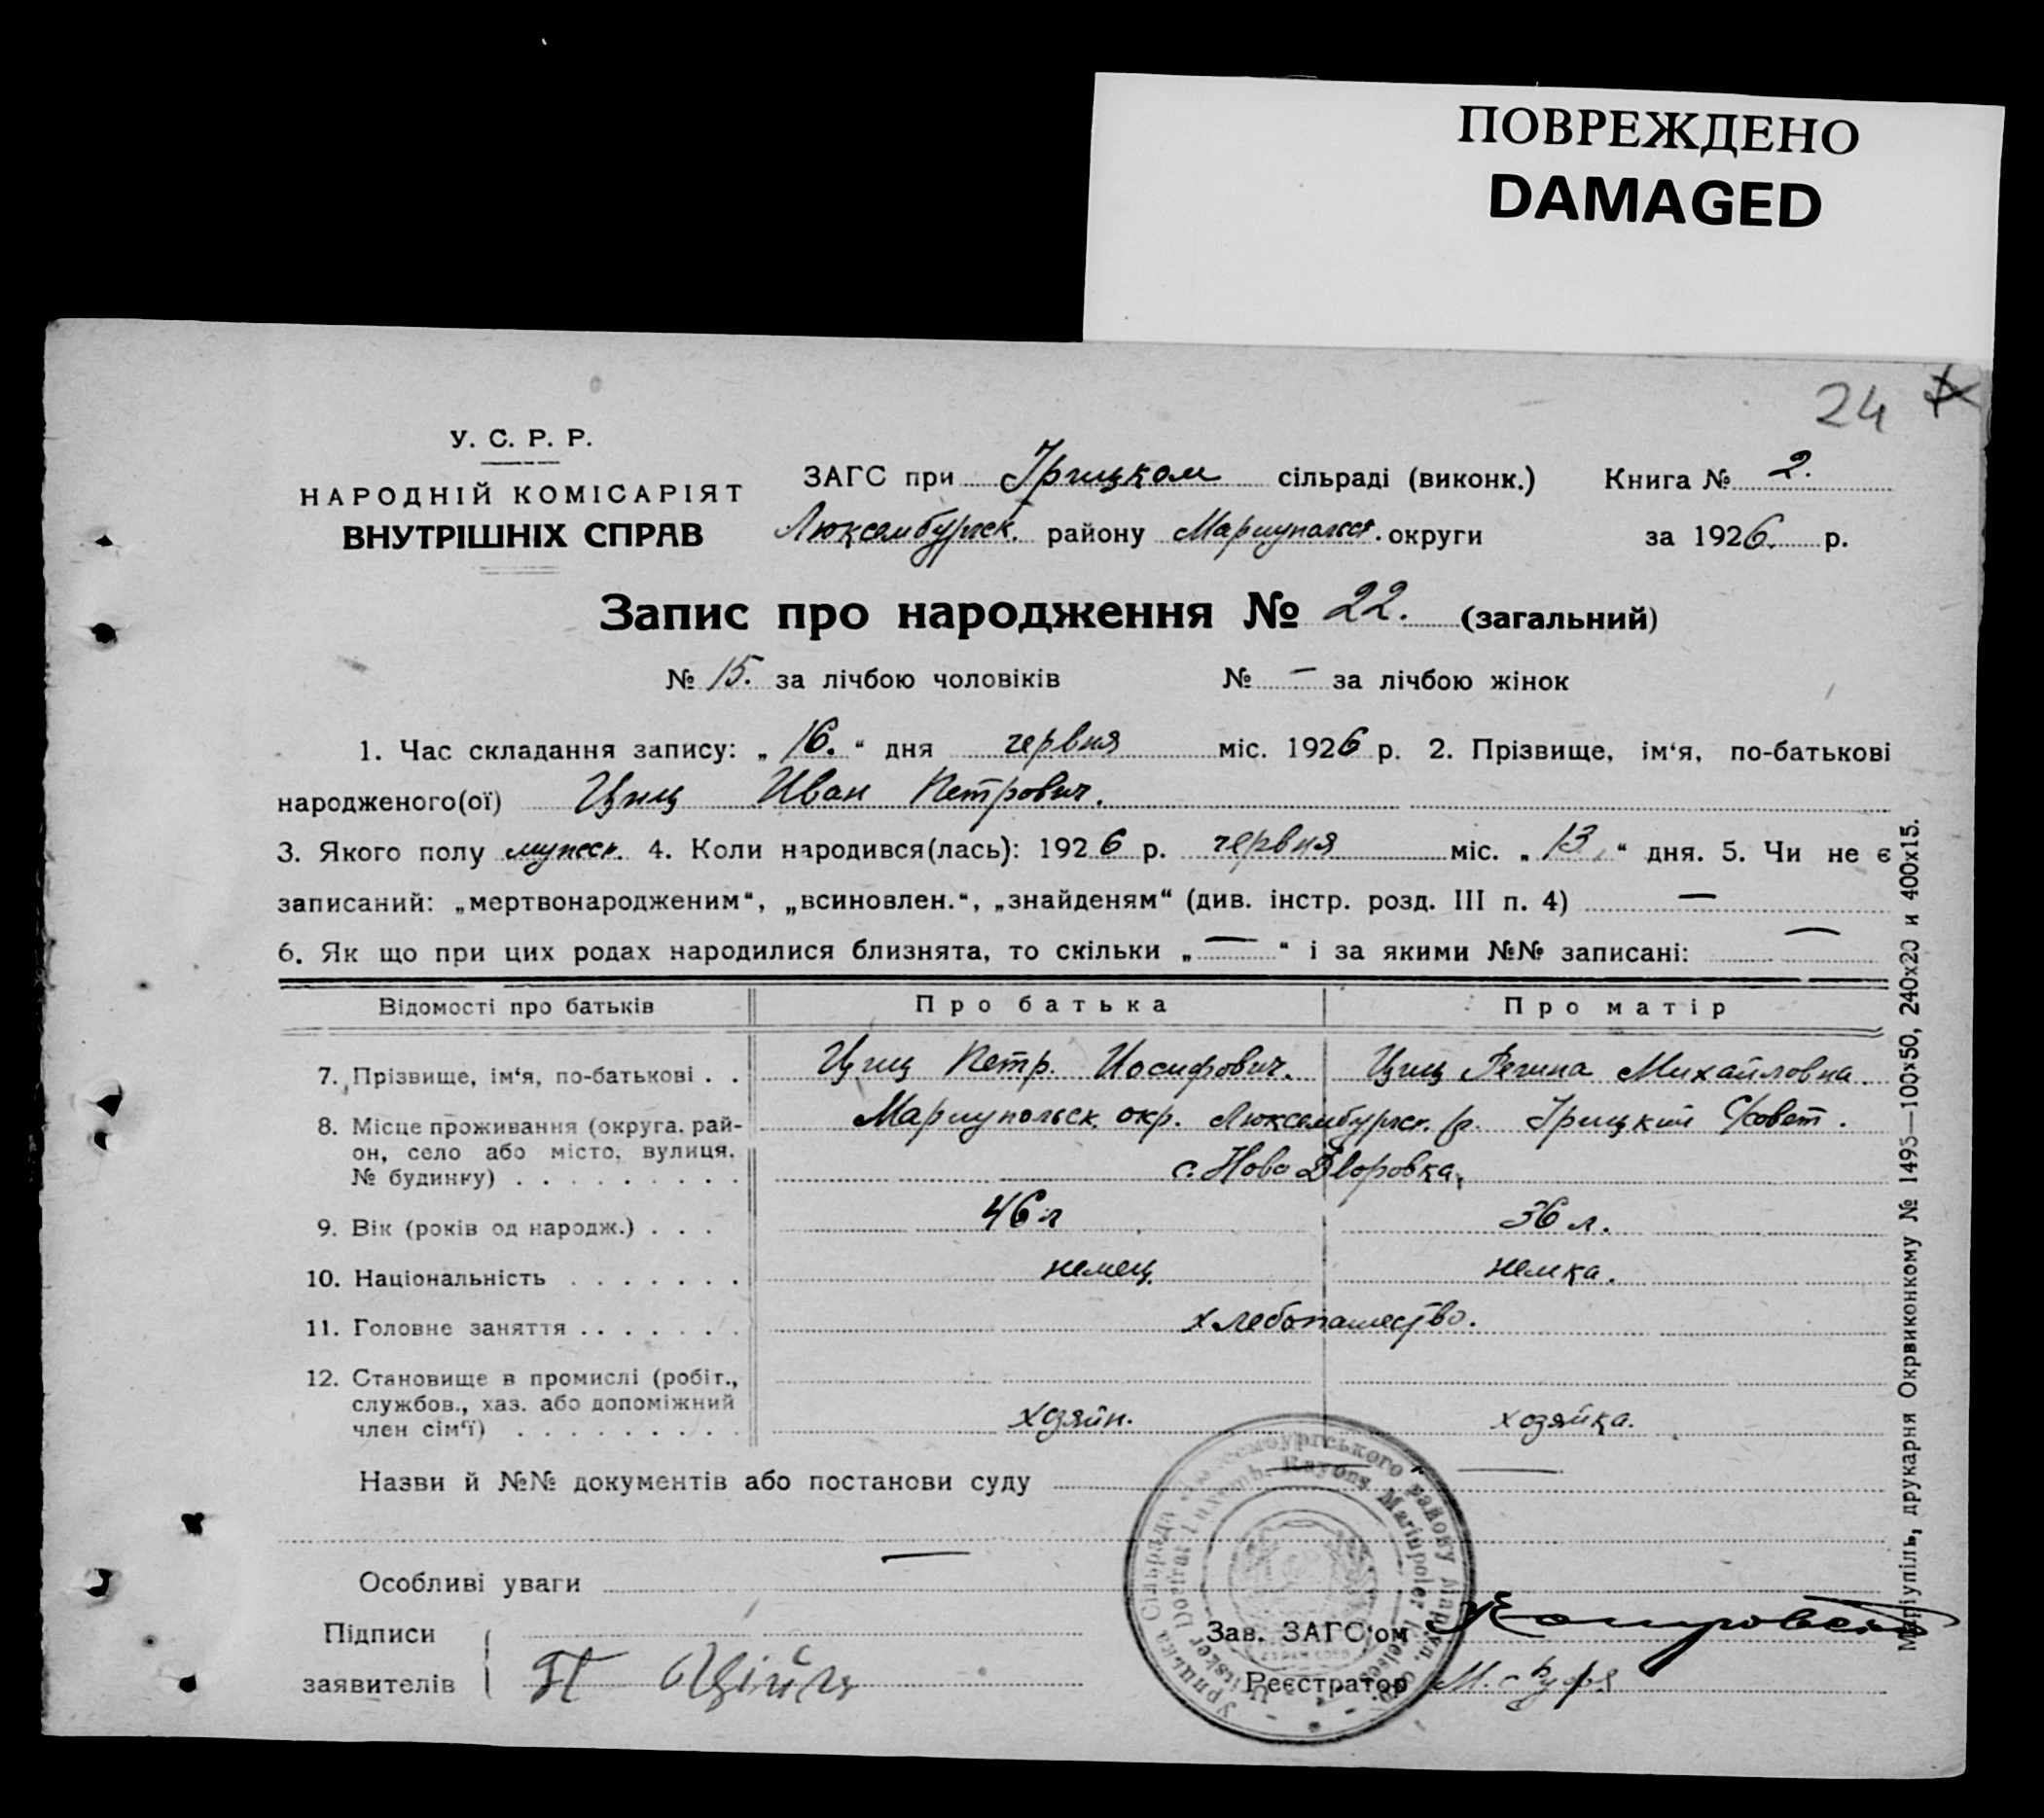 ПОВРЕЖДЕНО
DAMAGED
24
У. С. Р. Р.
НАРОДНІЙ КОМІСАРІЯТ
ВНУТРІШНІХ СПРАВ
ЗАГС при Урицком сільраді (виконк.) Книга № 2.
Люксембургск. району Мариупольск. округи за 1926. р.
Запис про народження № 22. (загальний)
№ 15. за лічбою чоловіків № — за лічбою жінок
1. Час складання запису: „ 16. “ дня червня міс. 1926 р. 2. Прізвище, ім‘я, по-батькові
народженого(ої) Циц Иван Петрович.
3. Якого полу мужеск. 4. Коли народився(лась): 1926 р. червня міс. „ 13 “ дня. 5. Чи не є
записаний: „мертвонародженим“, „всиновлен.“, „знайденям“ (див. інстр. розд. III п. 4) —
6. Як що при цих родах народилися близнята, то скільки „ — “ і за якими №№ записані: —
Відомості про батьків Про батька Про матір
7. Прізвище, ім‘я, по-батькові . . Циц Петр. Иосифович. Циц Регина Михайловна.
8. Місце проживання (округа, рай- Мариупольск. окр. Люксембургск. р. Урицкий С/совет.
он, село або місто, вулиця, с. Ново Дворовка,
№ будинку) . . . . . . . . .
9. Вік (років од народж.) . . . 46 л 36 л.
10. Національність . . . . . . . немец. немка.
11. Головне заняття . . . . . . . хлебопашество.
12. Становище в промислі (робіт.,
службов., хаз. або допоміжний
член сім‘ї) . . . . . . . . . хозяйн. хозяйка.
Назви й №№ документів або постанови суду —
Особливі уваги —
Підписи
заявителів П
Зав. ЗАГС‘ом
Реєстратор М.
Урицька Сільрада Люксембургського району Маріуп. окр.
Uritsker Dorfrat Luxemb. Rayons Mariupoler Kreises
Маріупіль, друкарня Окрвиконкому № 1495—100х50, 240х20 и 400х15.